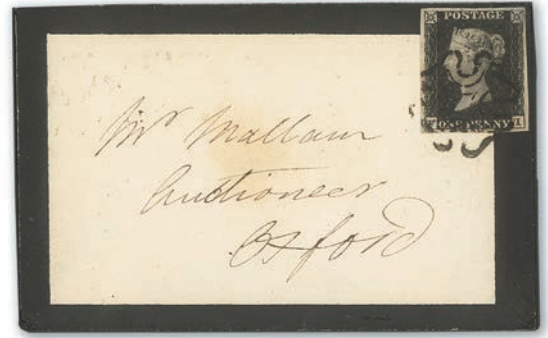 POSTAGE
ONE PENNY I
Mr Mallam
Auctioneer
Oxford